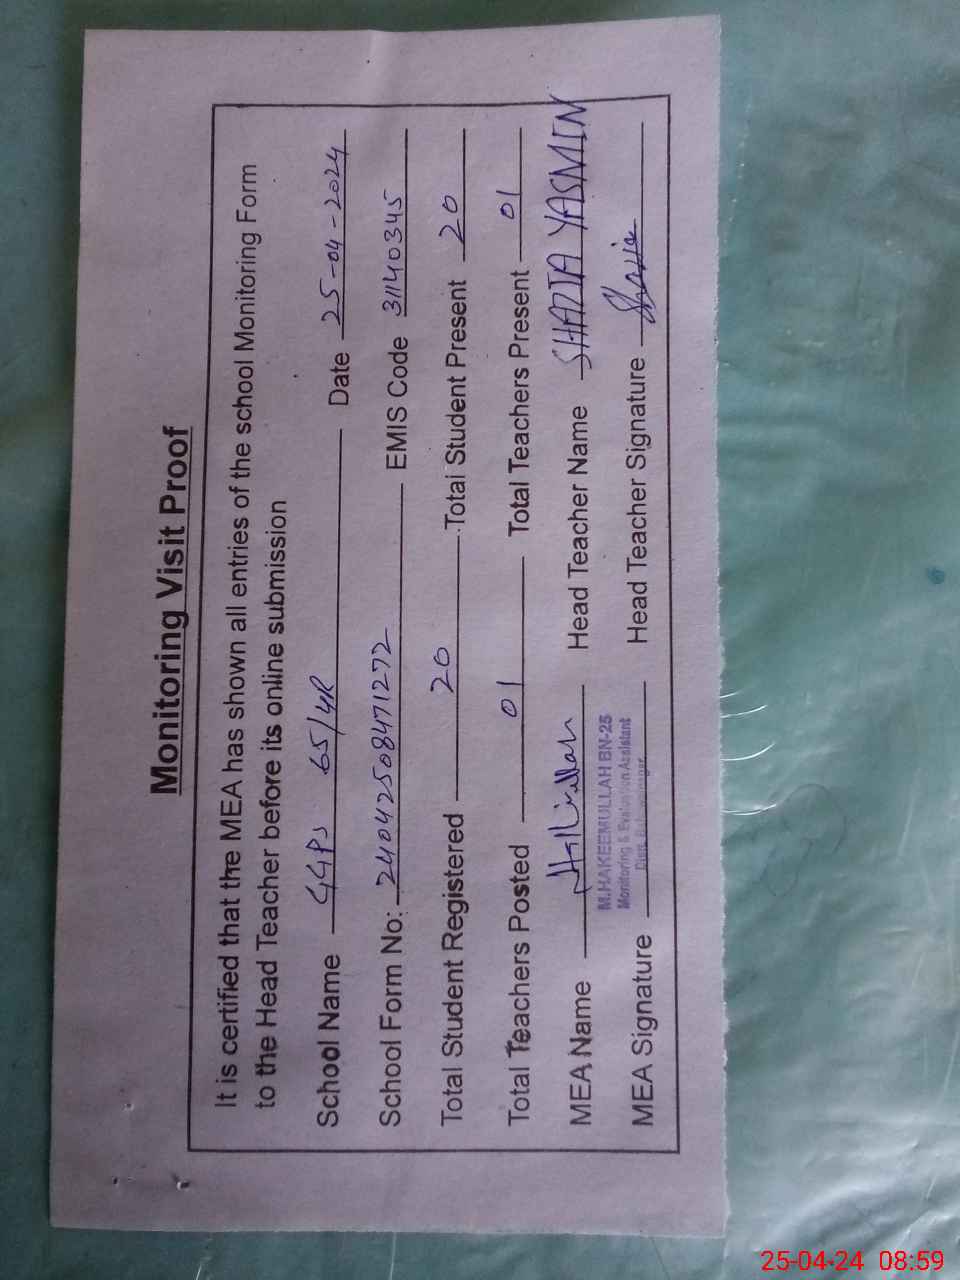 Monitoring Visit Proof
It is certified that the MEA has shown all entries of the school Monitoring Form
to the Head Teacher before its online submission
School Name GGPS 65/4R Date 25-04-2024
School Form No: 24042508471272 EMIS Code 31140345
Total Student Registered 20 Total Student Present 20
Total Teachers Posted 01 Total Teachers Present 01
MEA Name Head Teacher Name SHAZIA YASMIN
M.HAKEEMULLAH BN-25
Monitoring & Evaluation Assistant
Distt. Bahawalnagar
MEA Signature Head Teacher Signature Shazia
25-04-24 08:59